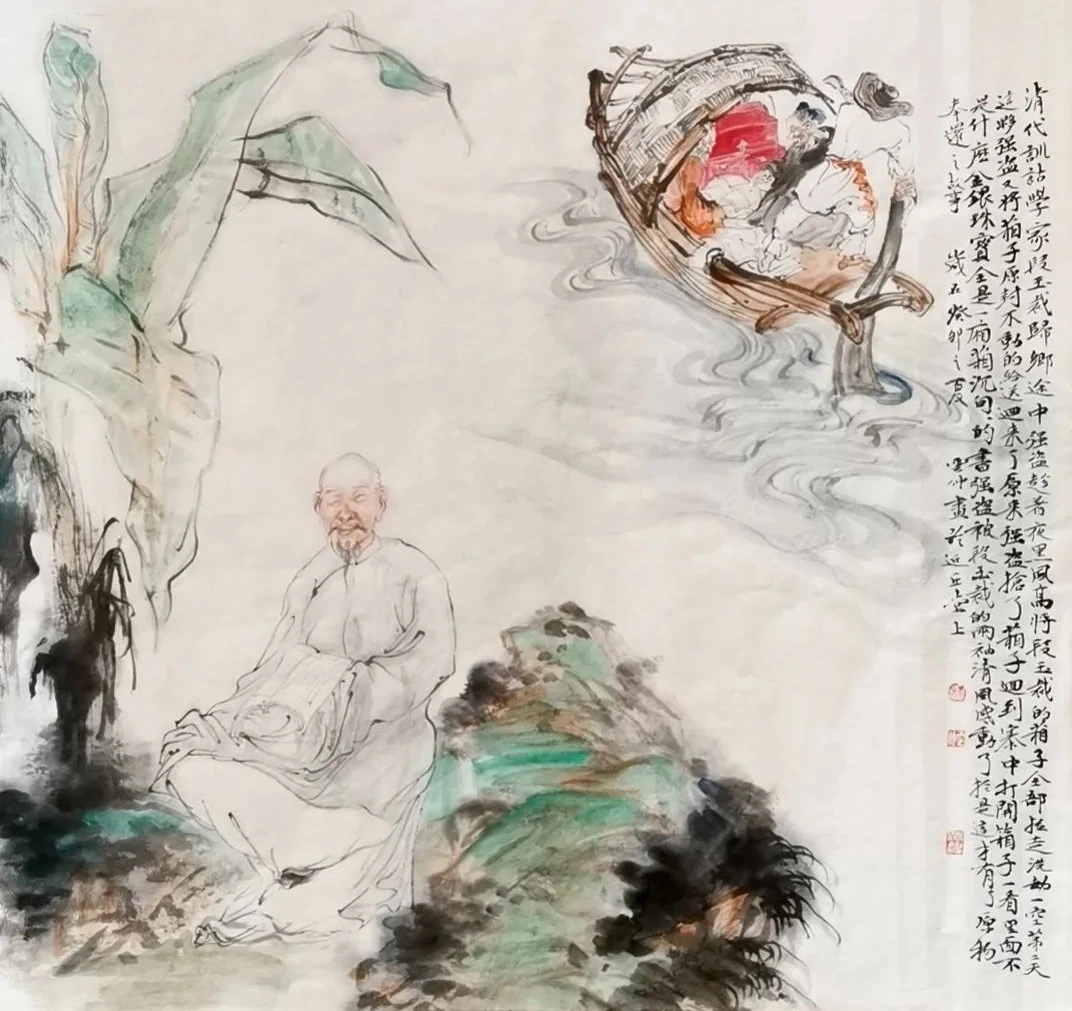 清代訓詁學家段玉裁歸鄉途中强盗趁着夜黑風高將段玉裁的箱子全部拉走洗劫一空第二天
這夥强盗又將箱子原封不動的給送迴來了原来强盗搶了箱子迴到寨中打開箱子一看里面不
是什庅金銀珠寶全是一廂箱沉甸甸的書强盗被段玉裁的兩袖清風感動了於是這才有了原物
奉還之故事 歲在癸卯之夏 畫於近丘堂上